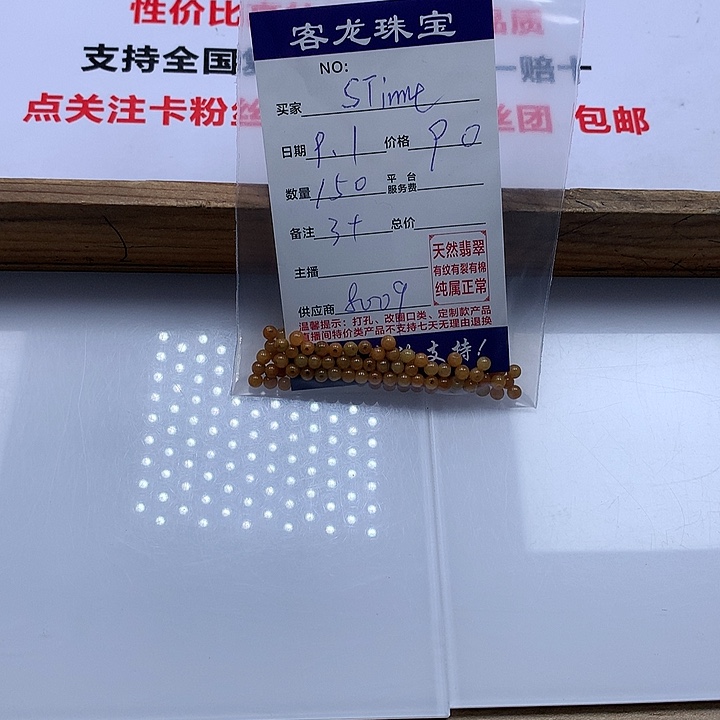 性价比
品质
支持全国
一赔十
点关注卡粉丝
丝团 包邮
客龙珠宝
NO:
买家 STime
日期 9.1 价格 90
数量 150 平台服务费
备注 3+ 总价
主播
供应商 8009
天然翡翠
有纹有裂有棉
纯属正常
温馨提示：打孔、改圈口类、定制款产品
直播间特价类产品不支持七天无理由退换
支持！